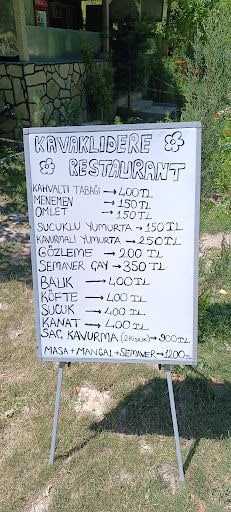 KAVAKLIDERE
RESTAURANT
KAHVALTI TABAĞI → 400 TL
MENEMEN → 150 TL
OMLET → 150 TL
SUCUKLU YUMURTA → 150 TL
KAVURMALI YUMURTA → 250 TL
GÖZLEME → 200 TL
SEMAVER ÇAY → 350 TL
BALIK → 400 TL
KÖFTE → 400 TL
SUCUK → 400 TL
KANAT → 400 TL
SAÇ KAVURMA (2 KİŞİLİK) → 900 TL
MASA + MANGAL + SEMAVER → 1200 TL